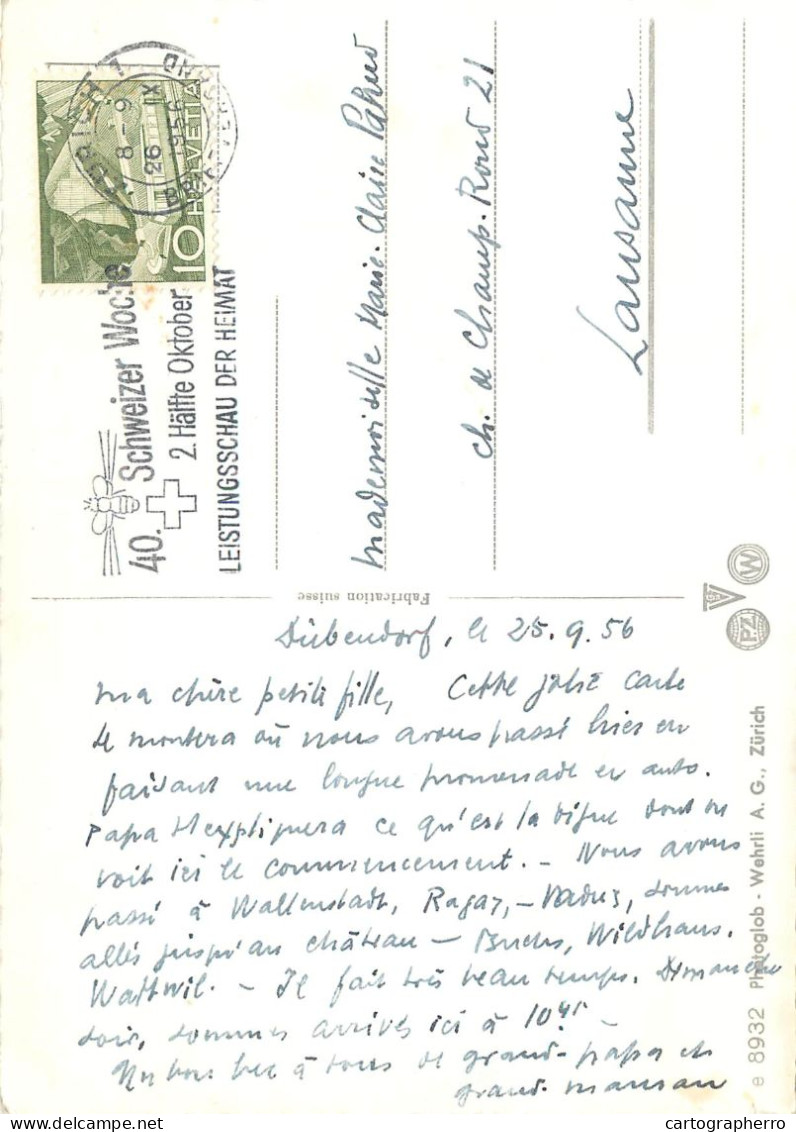 ZÜRICH 1
8-9
26 IX
1956
BRIEFVERSAND
HELVETIA
10
40. Schweizer Woche
2. Hälfte Oktober
LEISTUNGSSCHAU DER HEIMAT
Mademoiselle Marie-Claire Pahud
ch. de Champ-Rond 21
Lausanne
Fabrication suisse
Dübendorf, le 25.9.56
Ma chère petite fille, Cette jolie carte
te montera où nous avons passé hier en
faisant une longue promenade en auto.
Papa t'expliquera ce qu'est la digue dont on
voit ici le commencement. - Nous avons
passé à Wallenstadt, Ragaz, - Vaduz, sommes
allés jusqu'au château - Buchs, Wildhaus,
Wattwil. - Il fait très beau temps. Dimanche
soir, sommes arrivés ici à 10
bons à tous de grand-papa et
grand-maman
PZ
W
e 8932 Photoglob - Wehrli A. G., Zürich
cartographerro